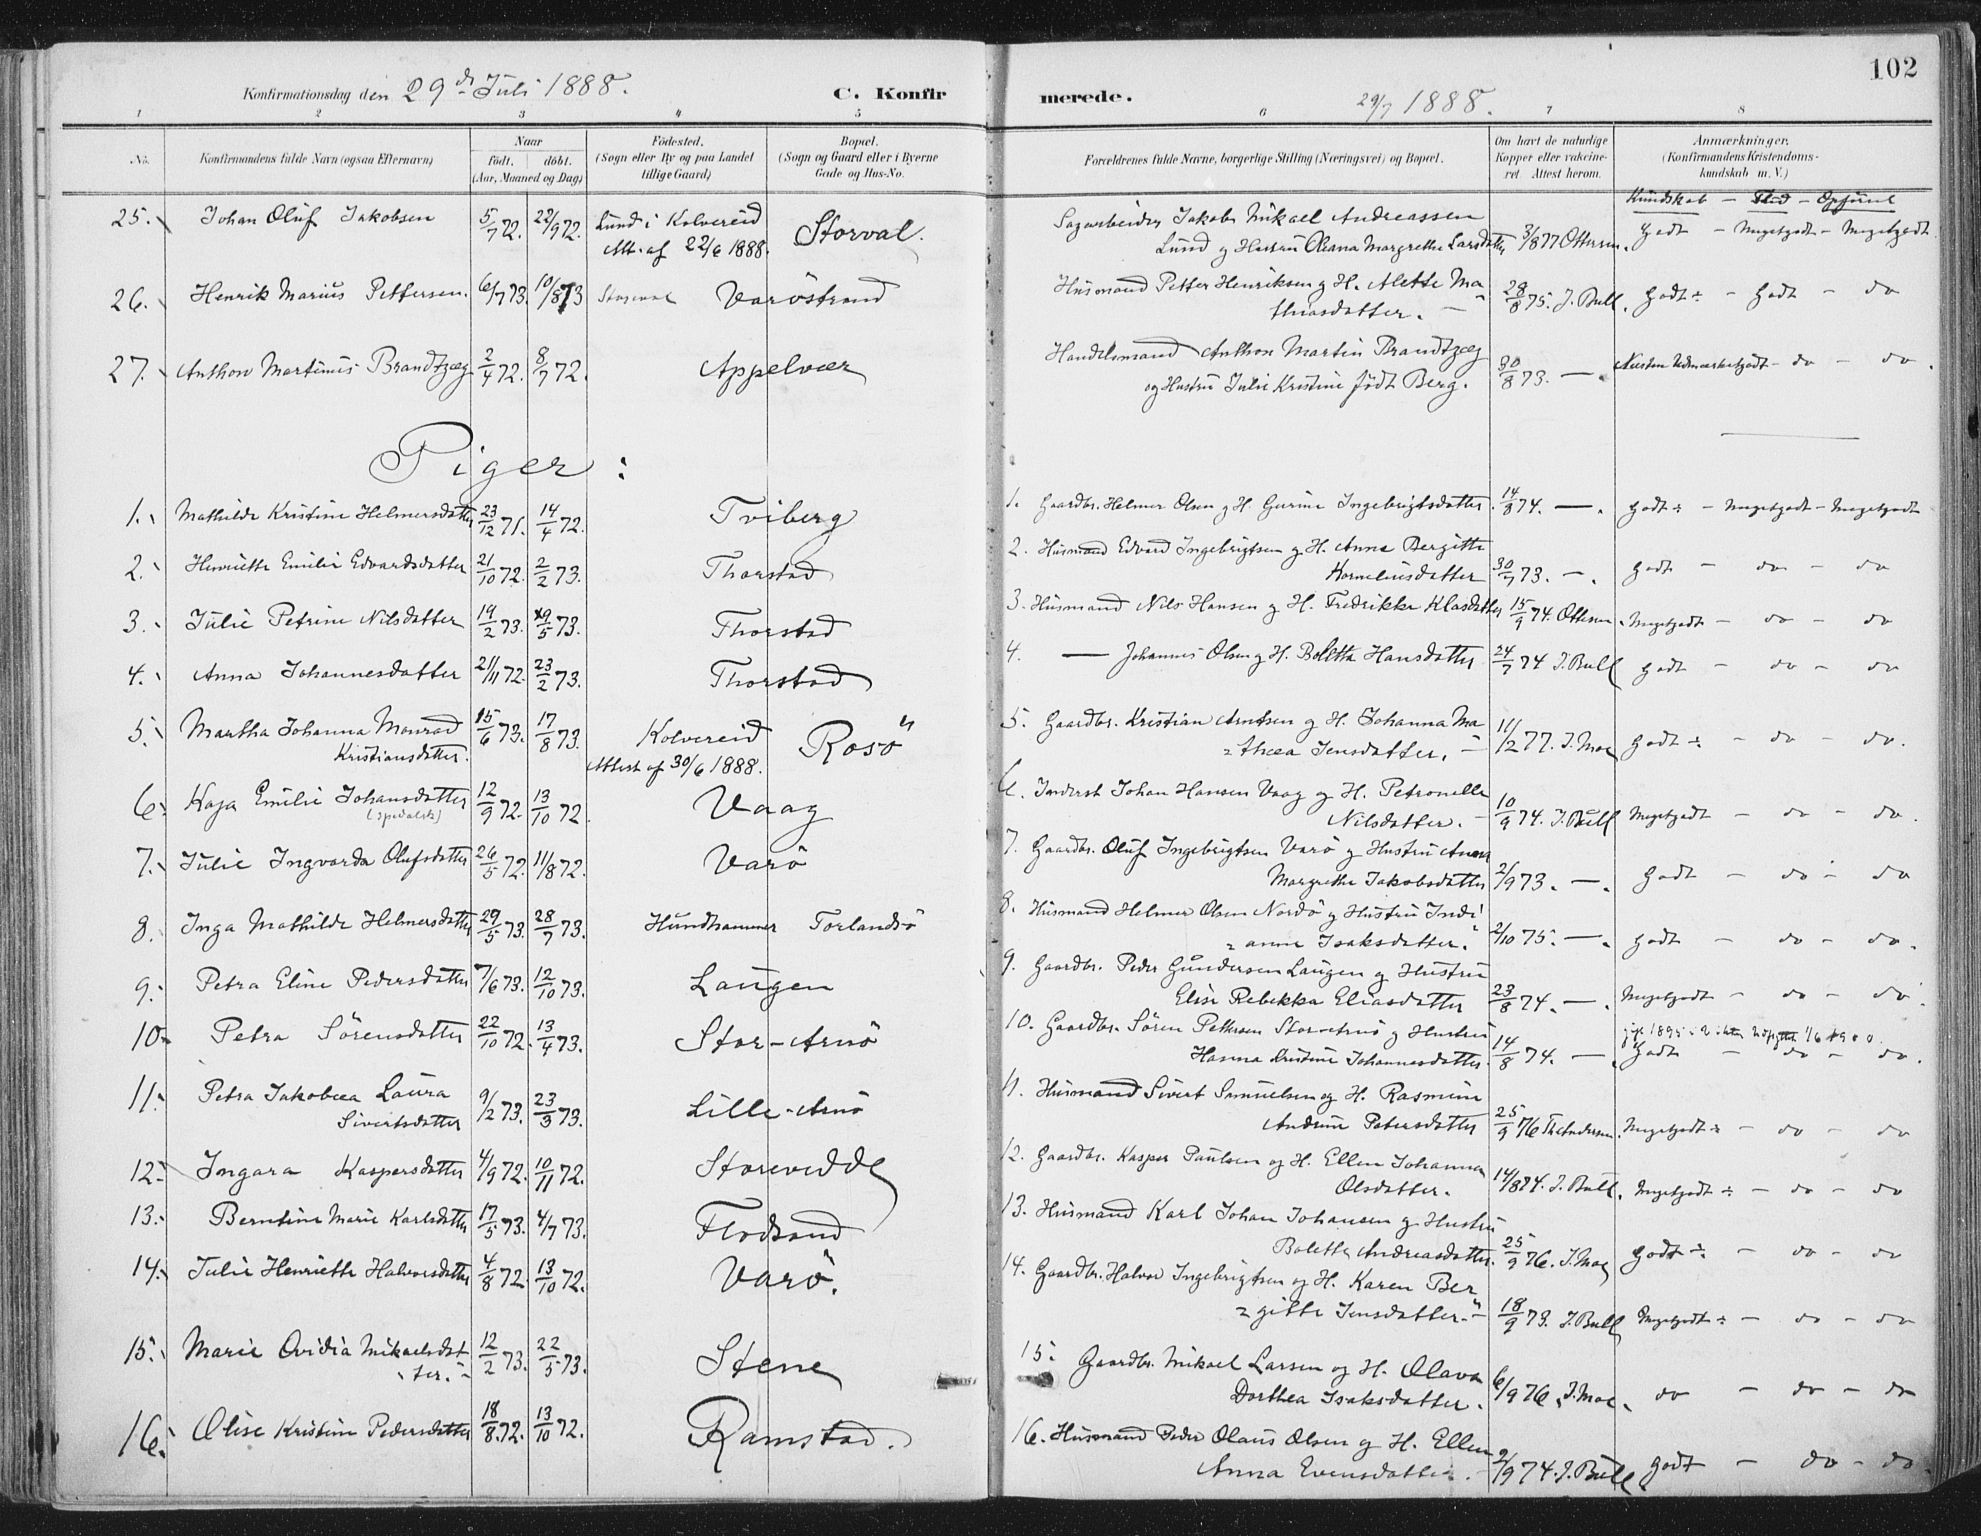 102
Konfirmationsdag den 29de Juli 1888.
C. Konfirmerede.
29/7 1888.
1 2 3 4 5 6 7 8
No.
Konfirmandens fulde Navn (ogsaa Efternavn)
Naar
födt. döbt.
(Aar, Maaned og Dag)
Födested.
(Sogn eller By og paa Landet
tillige Gaard)
Bopæl.
(Sogn og Gaard eller i Byerne
Gade og Hus-No.
Forældrenes fulde Navne, borgerlige Stilling (Næringsvei) og Bopæl.
Om havt de naturlige
Kopper eller vakcineret. Attest herom.
Anmærkninger.
(Konfirmandens Kristendomskundskab m. V.)
Kundskab - Flid - Opførsel
25. Johan Oluf Jakobsen 5/7 72. 22/9 72. Lund i Kolvereid Storval.
Att. af 22/6 1888.
Sagarbeider Jakob Mikael Andreassen
Lund og Hustru Oliana Margrethe Larsdatter 3/8 77 Ottersen. Godt - Megetgodt - Megetgodt
26. Henrik Marius Pettersen. 6/7 73. 10/8 73 Storval Varöstrand
Husmand Petter Henriksen og H. Alette Ma
thiasdatter. - 28/8 75. J. Bull. Godt ÷ - Godt - do
27. Anthon Martinus Brandtzæg 2/4 72. 8/7 72. Appelvær
Handelsmand Anthon Martin Brandtzæg
og Hustru Julie Kristine födt Berg. 30/8 73. - . Næsten Udmærketgodt - do - do.
Piger:
1. Mathilde Kristine Helmersdatter 23/12 71. 14/4 72. Tviberg
1. Gaardbr. Helmer Olsen og H. Gurine Ingebrigtsdatter. 14/8 74. - . Godt ÷ - Megetgodt - Megetgodt
2. Henriette Emilie Edvardsdatter 21/10 72. 2/2 73. Thorstad
2. Husmand Edvard Ingebrigtsen og H. Anna Bergitte
Korneliusdatter 30/7 73. - . Godt - do - do
3. Julie Petrine Nilsdatter 19/2 73. 29/5 73. Thorstad
3. Husmand Nils Hansen og H. Fredrikke Klasdatter 15/9 74. Ottersen. Megetgodt - do - do
4. Anna Johannesdatter 21/11 72. 23/2 73. Thorstad
4. - Johannes Olsen og H. Boletta Hansdatter. 24/7 74 J. Bull Godt - do - do
5. Martha Johanna Monrad 15/6 73. 17/8 73. Kolvereid Rosö
Kristiansdatter. Attest af 30/6 1888.
5. Gaardbr. Kristian Arntsen og H. Johanna Ma
thea Jensdatter. - 11/2 77. J. Moe Godt ÷ - do - do.
6. Kaja Emilie Johansdatter 12/9 72. 13/10 72. Vaag
(spedalsk)
6. Inderst Johan Hansen Vaag og H. Petronelle
Nilsdatter. - 10/9 74. J. Bull Megetgodt - do - do.
7. Julie Ingvarda Olufsdatter 26/5 72. 11/8 72. Varö
7. Gaardbr. Oluf Ingebrigtsen Varö og Hustru Anna
Margrethe Jakobsdatter 2/9 73. - . Godt - do - do
8. Inga Mathilde Helmersdatter 29/5 73. 28/7 73. Hundhammer Torlandsö
8. Husmand Helmer Olsen Nordö og Hustru Indi
anne Isaksdatter. 2/10 75. - . Godt - do - do.
9. Petra Eline Pedersdatter 7/6 73. 12/10 73. Laugen
9. Gaardbr. Peder Gundersen Laugen og Hustru
Elise Rebekka Eliasdatter 23/8 74. - . Megetgodt - do - do.
10. Petra Sörensdatter 22/10 72. 13/4 73. Stor-Arnö
10. Gaardbr. Sören Pettersen Stor-Arnö og Hustru
Hanna Kristine Johannesdatter. 14/8 74. - . Godt - do - do.
11. Petra Jakobæa Laura 9/2 73. 23/3 73. Lille-Arnö
Sivertsdatter
11. Husmand Sivert Samuelsen og H. Rasmine
Andrine Petersdatter 25/9 76 Th. Andersen. Megetgodt ÷ - do - do
12. Ingara Kaspersdatter 4/9 72. 10/11 72. Storevedde
12. Gaardbr. Kasper Paulsen og H. Ellen Johanna
Olsdatter. 14/8 74. J. Bull. Megetgodt ÷ - do - do
13. Berntine Marie Karlsdatter 17/5 73. 4/7 73. Flodsand
13. Husmand Karl Johan Johansen og Hustru
Bolette Andreasdatter. 25/9 76. J. Moe Godt ÷ - do - do
14. Julie Henriette Halvorsdatter 4/8 72. 13/10 72. Varö.
14. Gaardbr. Halvor Ingebrigtsen og H. Karen Ber
gitte Jensdatter. - 18/9 73. J. Bull Megetgodt ÷ - do - do
15. Marie Ovidia Mikaelsdat 12/2 73. 22/5 73. Stene
ter. -
15. Gaardbr. Mikael Larsen og H. Olava
Dorthea Isaksdatter. 6/9 76. J. Moe. do - do - do
16. Olise Kristine Pedersdatter 18/8 72. 13/10 72. Ramstad.
16. Husmand Peder Olaus Olsen og H. Ellen
Anna Evensdatter. - 2/9 74. J. Bull. Godt - do - do.